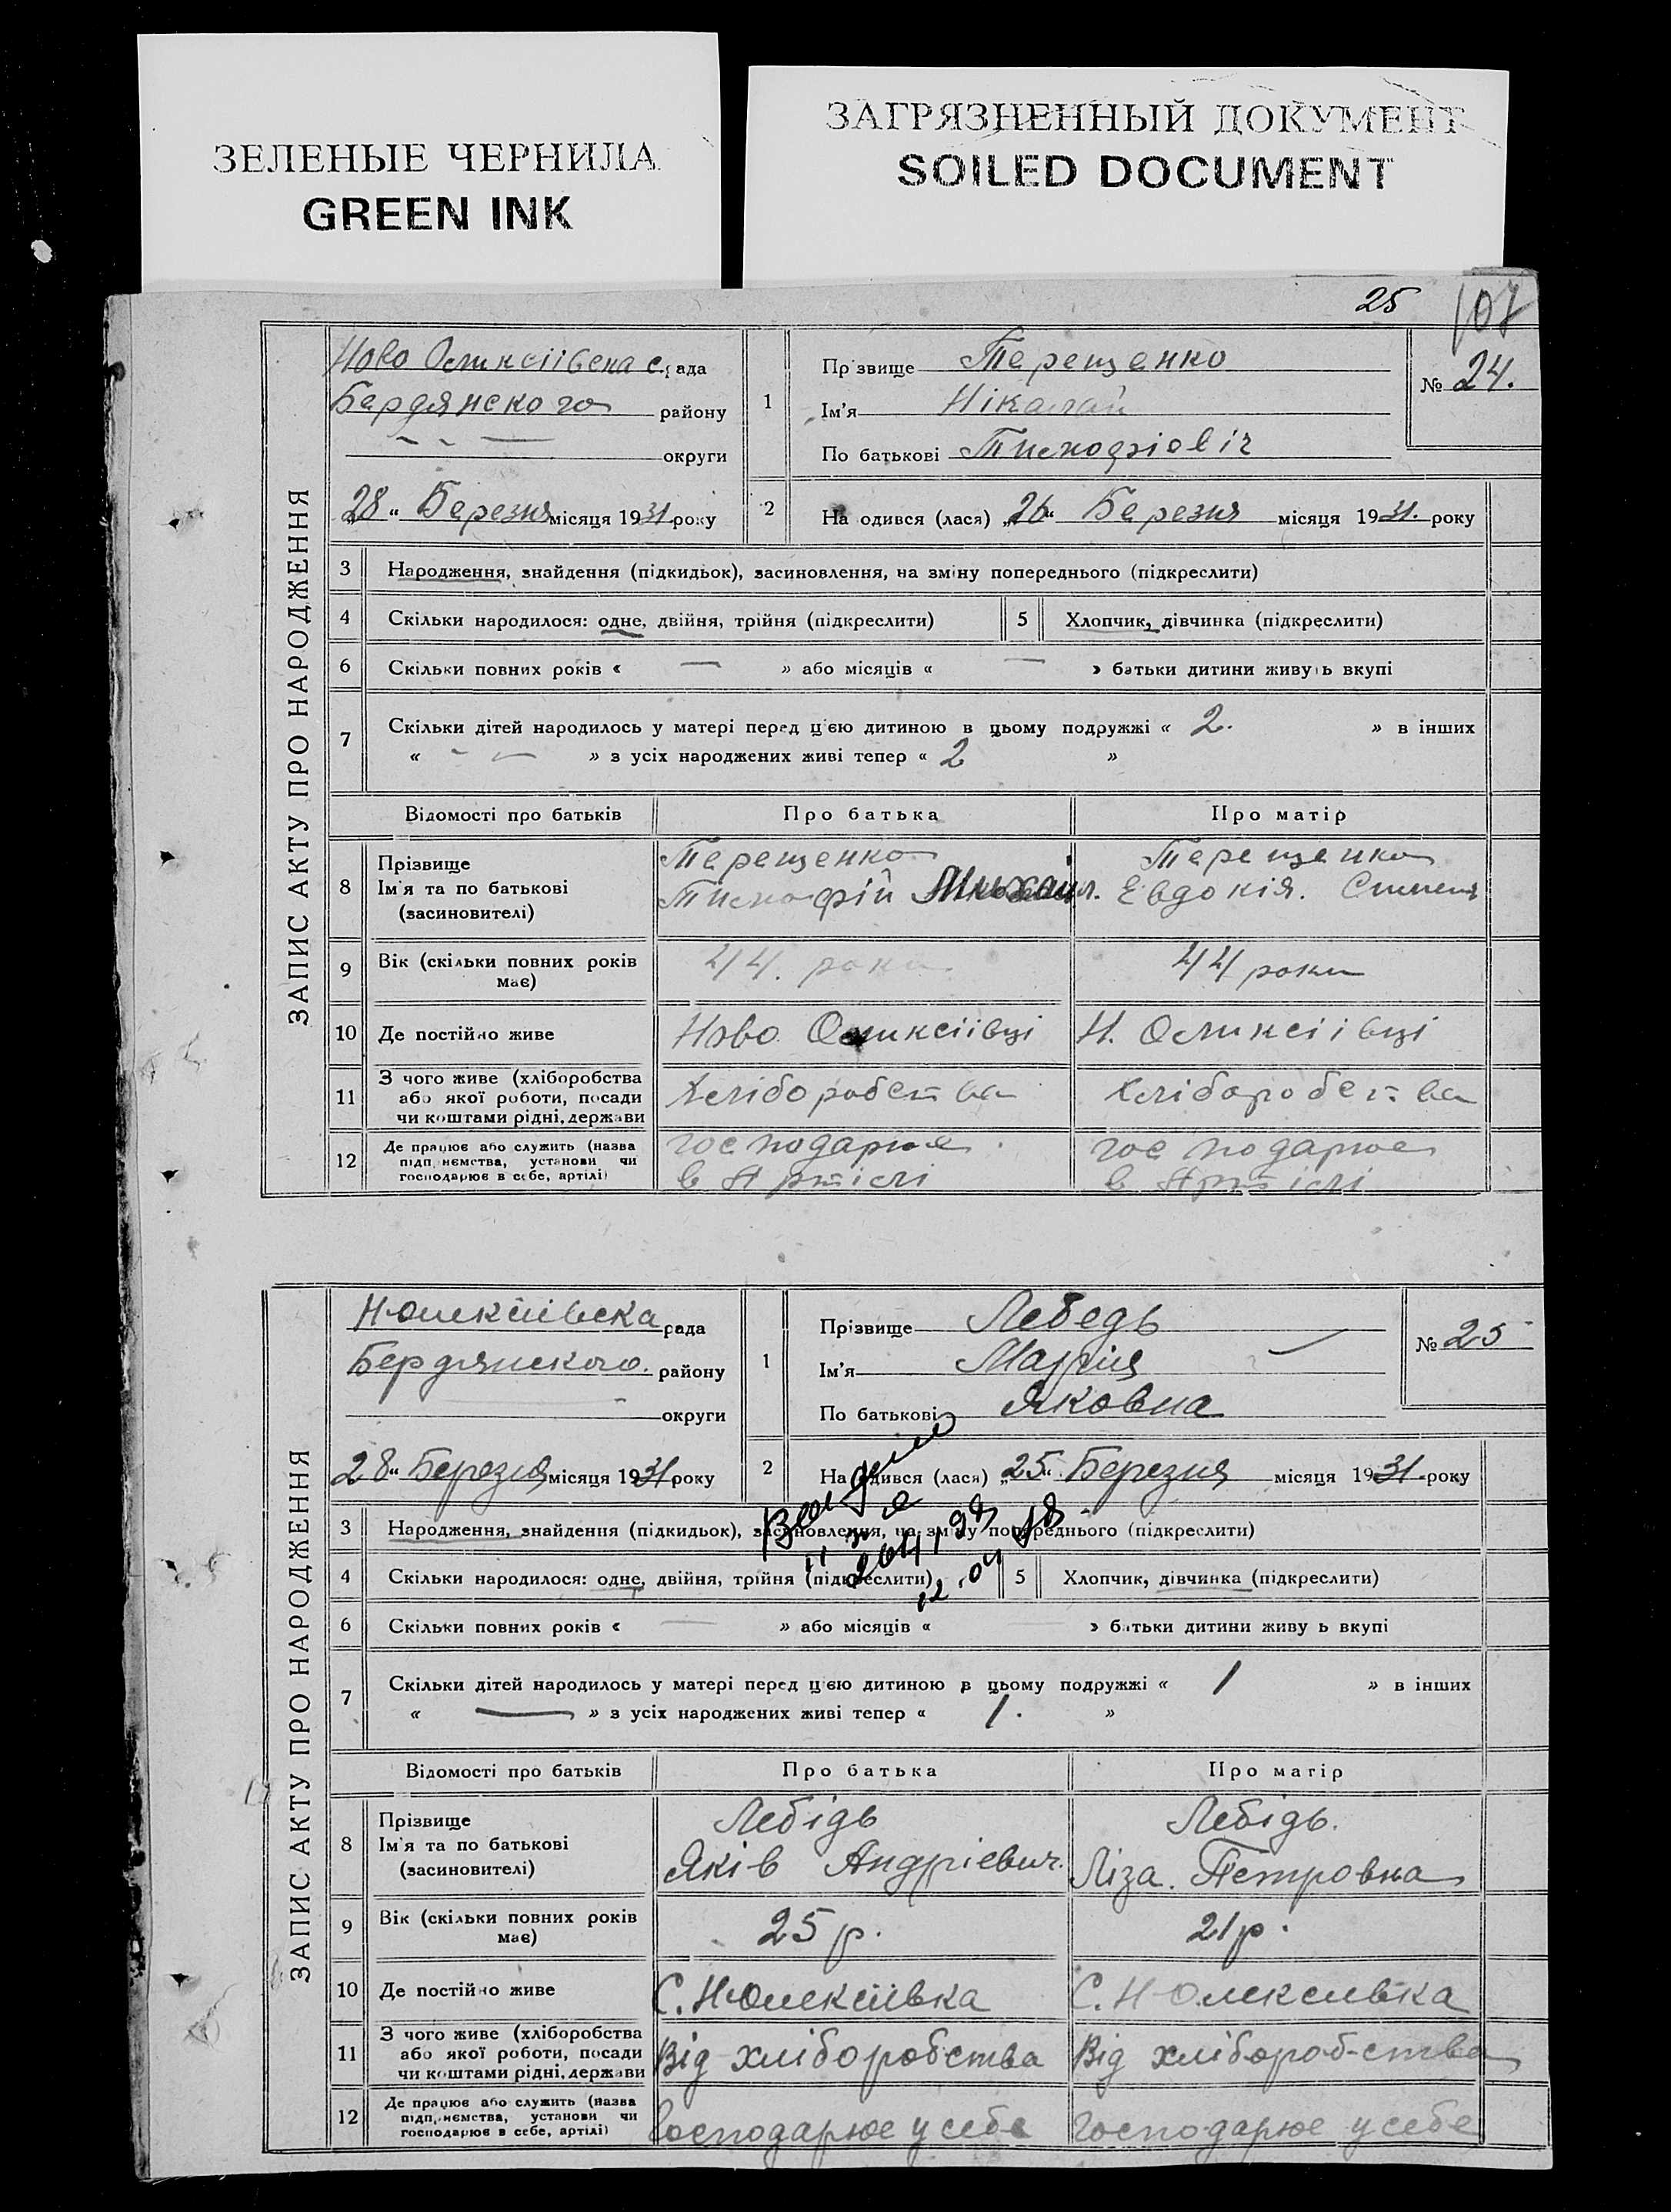 ЗЕЛЕНЫЕ ЧЕРНИЛА
GREEN INK
ЗАГРЯЗНЕННЫЙ ДОКУМЕНТ
SOILED DOCUMENT
25
107
ЗАПИС АКТУ ПРО НАРОДЖЕННЯ
Ново Оликсіівска с. рада
Бердянского району
округи
28 " Березня місяця 1931 року
1
Прізвище Терещенко
Ім'я Ніколай
По батькові
№ 24.
2
Народився (лася) „26" Березня місяця 1931. року
3 Народження, знайдення (підкидьок), засиновлення, на зміну попереднього (підкреслити)
4 Скільки народилося: одне, двійня, трійня (підкреслити) 5 Хлопчик, дівчинка (підкреслити)
6 Скільки повних років « — » або місяців « — » батьки дитини живуть вкупі
7 Скільки дітей народилось у матері перед цією дитиною в цьому подружжі « 2. » в інших
« - — » з усіх народжених живі тепер « 2 »
Відомості про батьків Про батька Про матір
8 Прізвище Ім'я та по батькові (засиновителі)
Терещенко
Терещенко
Евдокія.
9 Вік (скільки повних років має) 44. роки 44 роки
10 Де постійно живе Ново Оликсіівці Н. Оликсіівці
11 З чого живе (хліборобства або якої роботи, посади чи коштами рідні, держави Хліборобства Хліборобства
12 Де працює або служить (назва підприємства, установи чи господарює в себе, артілі)
господарюе в Артілі
господарюе в Артілі
ЗАПИС АКТУ ПРО НАРОДЖЕННЯ
Н-Олексіївска рада
Бердянского. району
округи
28 " Березня місяця 1931 року
1
Прізвище Лебедь
Ім'я Марія
По батькові Яковна
№ 25
2
Народився (лася) „25" Березня місяця 1931. року
3 Народження, знайдення (підкидьок), засиновлення, на зміну попереднього (підкреслити)
4 Скільки народилося: одне, двійня, трійня (підкреслити) 5 Хлопчик, дівчинка (підкреслити)
6 Скільки повних років « — » або місяців « » батьки дитини живуть вкупі
7 Скільки дітей народилось у матері перед цією дитиною в цьому подружжі « 1 » в інших
« — » з усіх народжених живі тепер « 1. »
Відомості про батьків Про батька Про матір
8 Прізвище Ім'я та по батькові (засиновителі)
Лебідь
Яків Андріевич.
Лебідь.
Ліза. Петровна
9 Вік (скільки повних років має) 25 р. 21 р.
10 Де постійно живе С. Н-Олексіївка С. Н-Олексіївка
11 З чого живе (хліборобства або якої роботи, посади чи коштами рідні, держави Від хліборобства Від хліборобства
12 Де працює або служить (назва підприємства, установи чи господарює в себе, артілі) Господарюе у себе Господарюе у себе